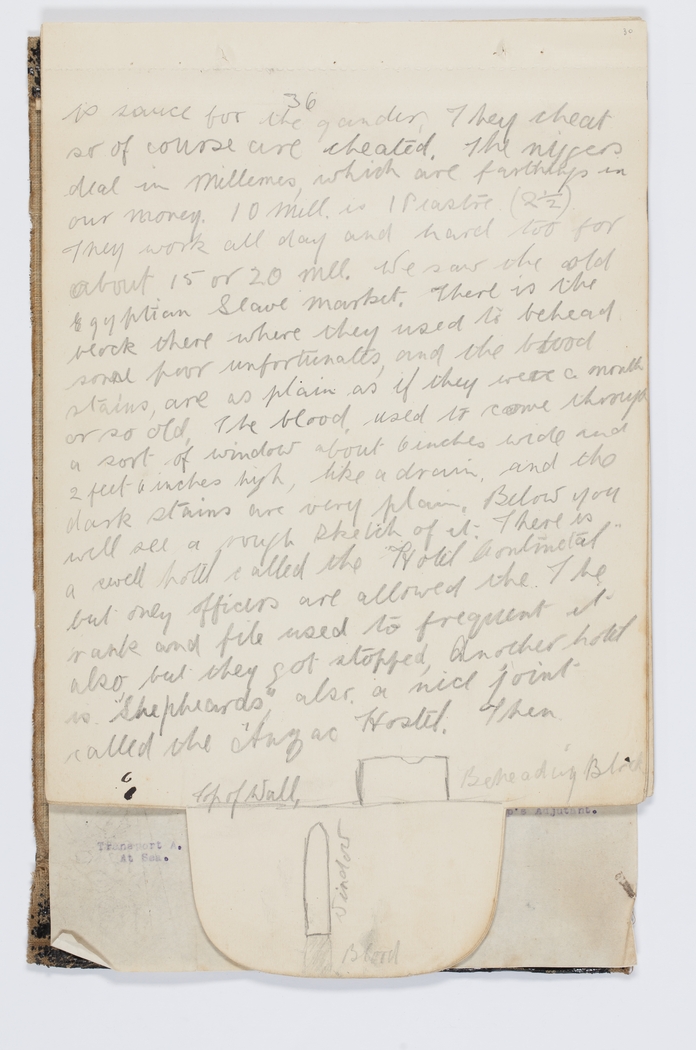 30
36
is sauce for the gander, They cheat
so of course are cheated. The niggers
deal in Millemes, which are farthings in
our money. 10 Mill. is 1 Piastre (2½)
They work all day and hard too for
about 15 or 20 mll. We saw the old
Egyptian Slave Market. There is the
block there where they used to behead
some poor unfortunates, and the blood
stains, are as plain as if they were a month
or so old, The blood, used to come through
a sort of window about 6 inches wide and
2 feet 6 inches high, like a drain, and the
dark stains are very plain. Below you
will see a rough sketch of it. There is
a swell hotel called the "Hotel Continetal"
but only officers are allowed the. The
rank and file used to frequent it
also, but they got stopped, Another hotel
is "Shepheards", also a nice joint
called the "Anzac Hostel. Then
Top of Wall,
Beheading Block
Transport A.
At Sea.
's Adjutant.
Window
Blood